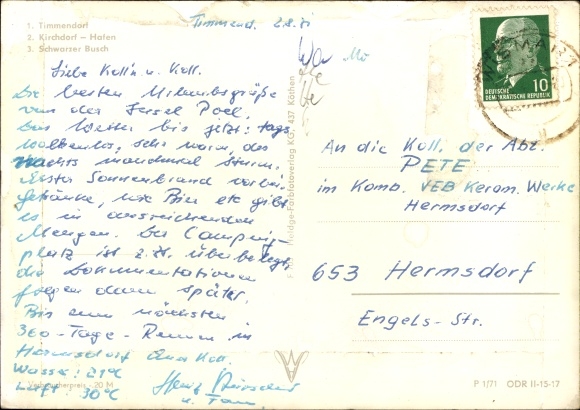 1. Timmendorf
2. Kirchdorf - Hafen
3. Schwarzer Busch
Timmend. 2.8.71
Liebe Koll'n u. Koll.
Die besten Urlaubsgrüße
von der Insel Poel.
Das Wetter bis jetzt: tags
wolkenlos, sehr warm, des
nachts manchmal Sturm.
Erster Sonnenbrand vorbei.
Getränke, wie Bier etc gibt
es in ausreichenden
Mengen. Der Camping-
platz ist z.Zt. überbelegt,
die Dokumentationen
folgen dann später.
Bis zum nächsten
360-Tage-Rennen in
Hermsdorf Euer Koll.
Wasser: 21°C
Luft: 30°C
u. Fam
Verbraucherpreis -20 M
KG, 437 Köthen
DEUTSCHE
DEMOKRATISCHE REPUBLIK
10
An die Koll. der Abt.
PETE
im Komb. VEB Keram. Werke
Hermsdorf
653 Hermsdorf
Engels-Str.
P 1/71 ODR II-15-17